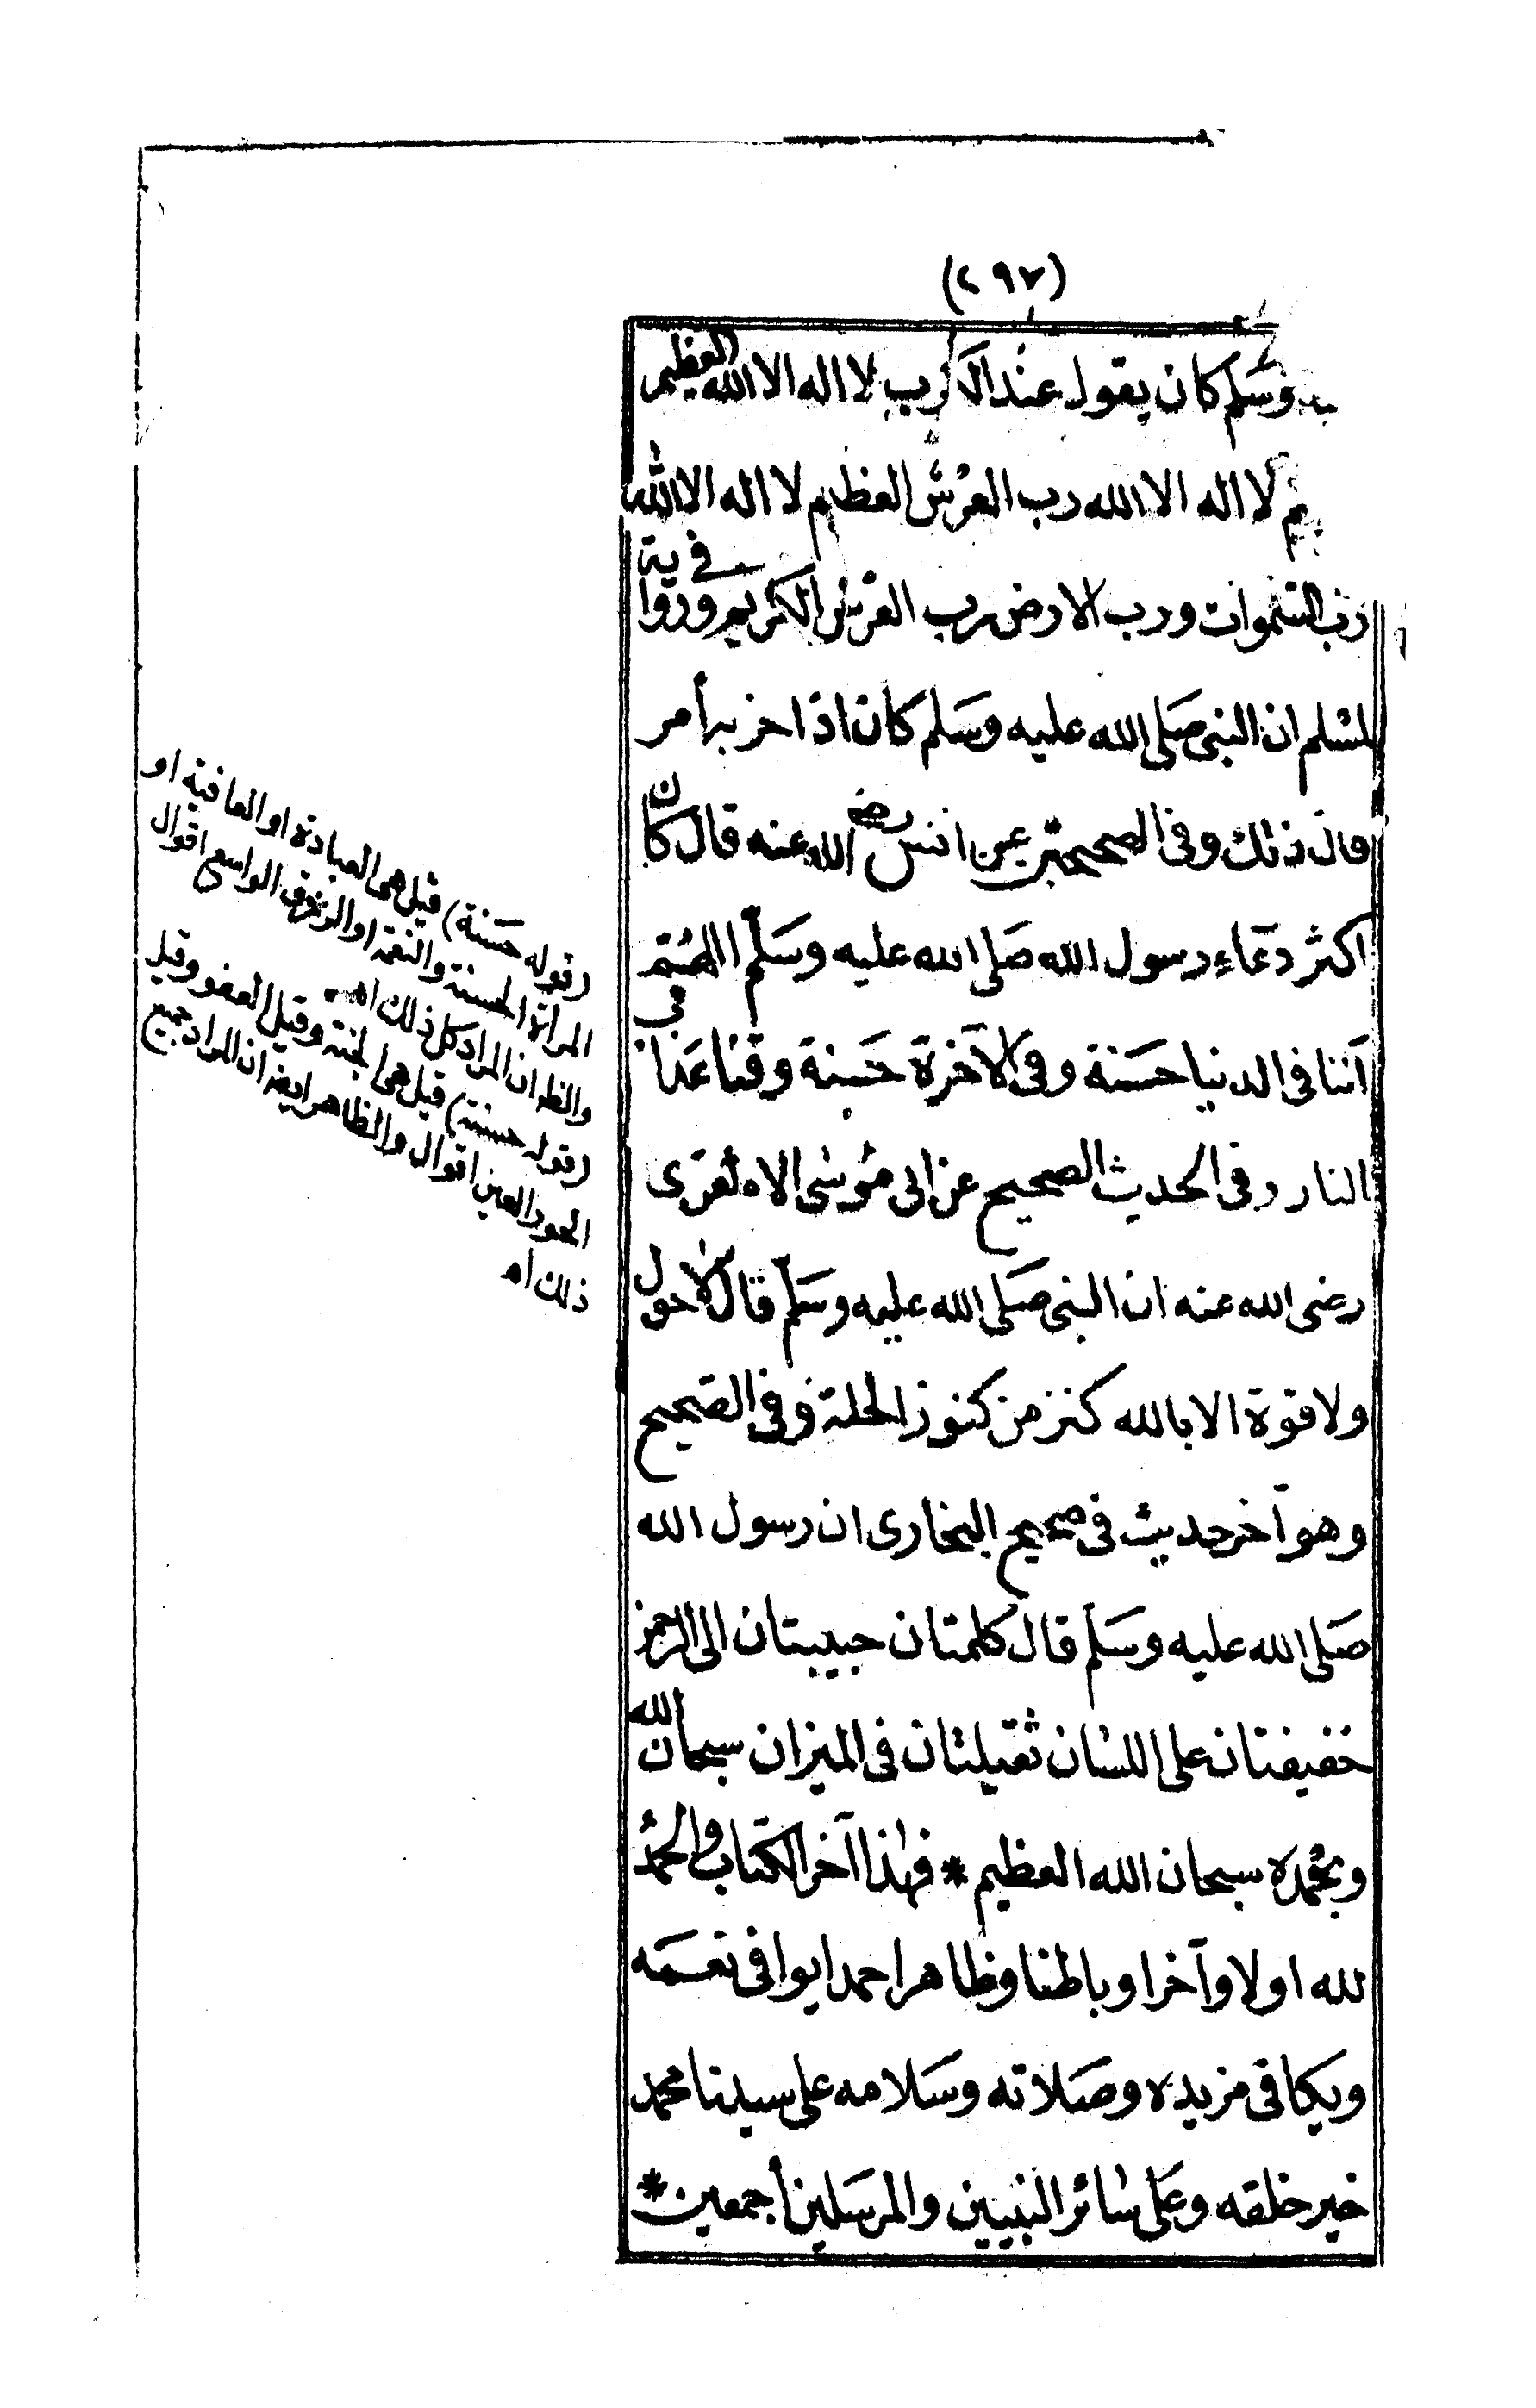 (٢٩٧)
وسلم كان يقول عند الكرب لا اله الا الله العظيم
لا اله الا الله رب العرش العظيم لا اله الا الله
رب السموات ورب الارض رب العرش الكريم وفي رواية
لمسلم ان النبي صلى الله عليه وسلم كان اذا حزبه أمر
قال ذلك وفي الصحيحين عن انس رضي الله عنه قال كان
اكثر دعاء رسول الله صلى الله عليه وسلم اللهم
آتنا في الدنيا حسنة وفي الآخرة حسنة وقنا عذاب
النار وفي الحديث الصحيح عن ابي موسى الاشعرى
رضي الله عنه ان النبي صلى الله عليه وسلم قال لا حول
ولا قوة الا بالله كنز من كنوز الجنة وفي الصحيح
وهو آخر حديث في صحيح البخارى ان رسول الله
صلى الله عليه وسلم قال كلمتان حبيبتان الى الرحمن
خفيفتان على اللسان ثقيلتان في الميزان سبحان الله
وبحمده سبحان الله العظيم * فهذا آخر الكتاب والحمد
لله اولا وآخرا وباطنا وظاهرا حمدا يوافى نعمه
ويكافى مزيده وصلاته وسلامه على سيدنا محمد
خير خلقه وعلى سائر النبيين والمرسلين أجمعين *
(قوله حسنة) قيل هي العبادة او العافية او
المرأة الحسنة والنعمة او الرزق الواسع اقوال
والظ ان المراد كل ذلك اه
(قوله حسنة) قيل هي الجنة وقيل العفو وقيل
الحور العين اقوال والظاهر ايضا ان المراد جميع
ذلك اه